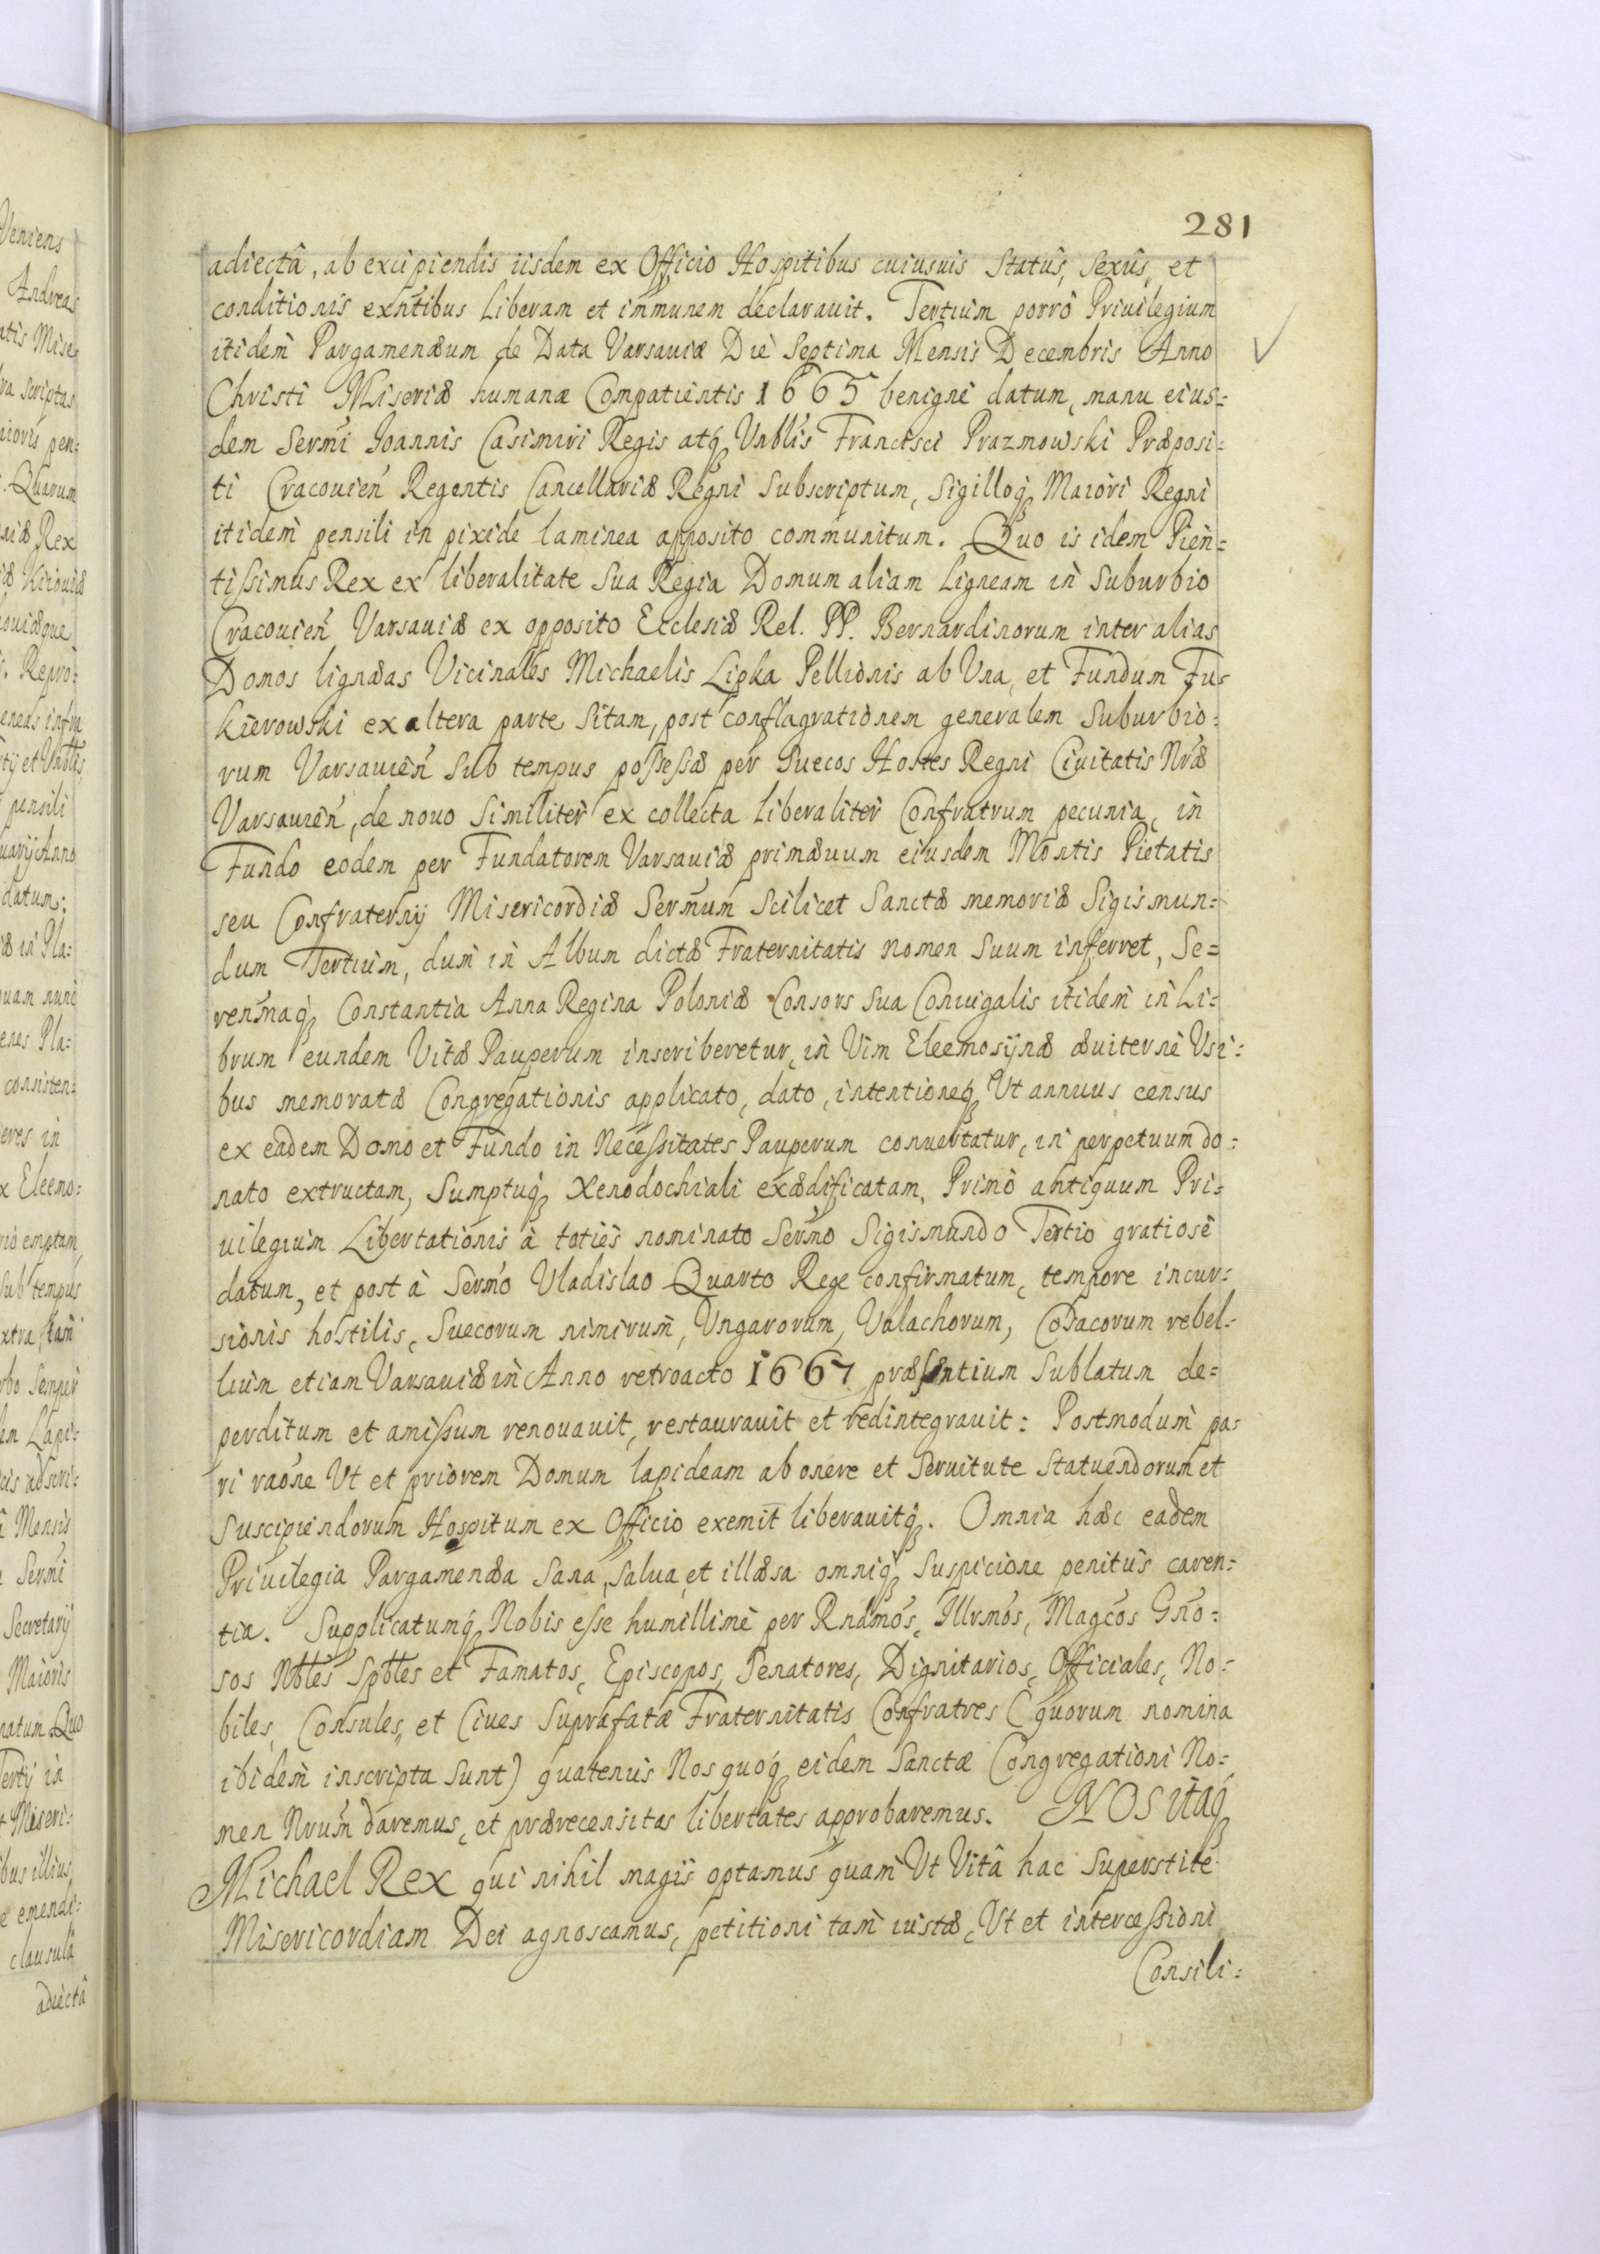 281
adiectâ, ab excipiendis iisdem ex Officio Hospitibus cuiusuis Statûs, Sexûs, et
conditionis exñtibus Liberam et immunem declarauit. Tertium porrò Priuilegium
itidem Pargamenæum de Data Varsauiæ Die Septima Mensis Decembris Anno
Christi Miseriæ humanæ Compatientis 1665 benignè datum, manu eius=
dem Sermi Ioannis Casimiri Regis atq̢ Vnblis Francisci Prazmowski Præposi=
ti Cracouien̄ Regentis Cancellariæ Regni Subscriptum, Sigilloq̢ Maiori Regni
itidem pensili in pixide laminea apposito communitum. Quo is idem Pien=
tissimus Rex ex liberalitate Sua Regia Domum aliam Ligneam in Suburbio
Cracouien̄ Varsauiæ ex opposito Ecclesiæ Rel. PP. Bernardinorum inter alias
Domos lignæas Vicinales Michaelis Lipka Pellionis ab Vna, et Fundum Fu=
kierowski ex altera parte Sitam, post conflagrationem generalem Suburbio=
rum Varsauien̄ Sub tempus possessæ per Suecos Hostes Regni Ciuitatis Nræ
Varsauien̄, de nouo Similiter ex collecta liberaliter Confratrum pecunia, in
Fundo eodem per Fundatorem Varsauiæ primæuum eiusdem Montis Pietatis
seu Confraternij Misericordiæ Sermum Scilicet Sanctæ memoriæ Sigismun=
dum Tertium, dum in Album dictæ Fraternitatis nomen Suum inferret, Se=
renmaq̢ Constantia Anna Regina Poloniæ Consors Sua Coniugalis itidem in Li=
brum eundem Vitæ Pauperum inscriberetur, in Vim Eleemosijnæ æuiternè Vsi=
bus memoratæ Congregationis applicato, dato, intentioneq̢ Vt annuus census
ex eadem Domo et Fundo in Necessitates Pauperum conuertatur, in perpetuum do=
nato extructam, Sumptuq̢ Xenodochiali exædificatam, Primò antiquum Pri=
uilegium Libertationis à toties nominato Sermo Sigismundo Tertio gratiosè
datum, et post à Sermo Vladislao Quarto Rege confirmatum, tempore incur=
sionis hostilis, Suecorum nimirum, Vngarorum, Valachorum, Cosacorum rebel=
lium etiam Varsauiæ in Anno retroacto 1667 præsentium Sublatum de=
perditum et amissum renouauit, restaurauit et redintegrauit: Postmodum pa=
ri raone Vt et priorem Domum lapideam ab onere et Seruitute Statuendorum et
Suscipiendorum Hospitum ex Officio exemit liberauitq̢. Omnia hæc eadem
Priuilegia Pargamenæa Sana, Salua, et illæsa omniq̢ Suspicione penitùs caren=
tia. Supplicatumq̢ Nobis esse humillimè per Rndmos, Illrmos, Magcos Gno=
sos Nbles Spbles et Famatos, Episcopos, Senatores, Dignitarios, Officiales, No=
biles, Consules, et Ciues Suprafatæ Fraternitatis Confratres (quorum nomina
ibidem inscripta Sunt) quatenus Nos quoq̢ eidem Sanctæ Congregationi No=
men Nrum daremus, et prærecensitas libertates approbaremus. NOS itaq̢
Michael Rex qui nihil magis optamus quam Vt Vitâ hac Superstite
Misericordiam Dei agnoscamus, petitioni tam iustæ, Vt et intercessioni
Consili=